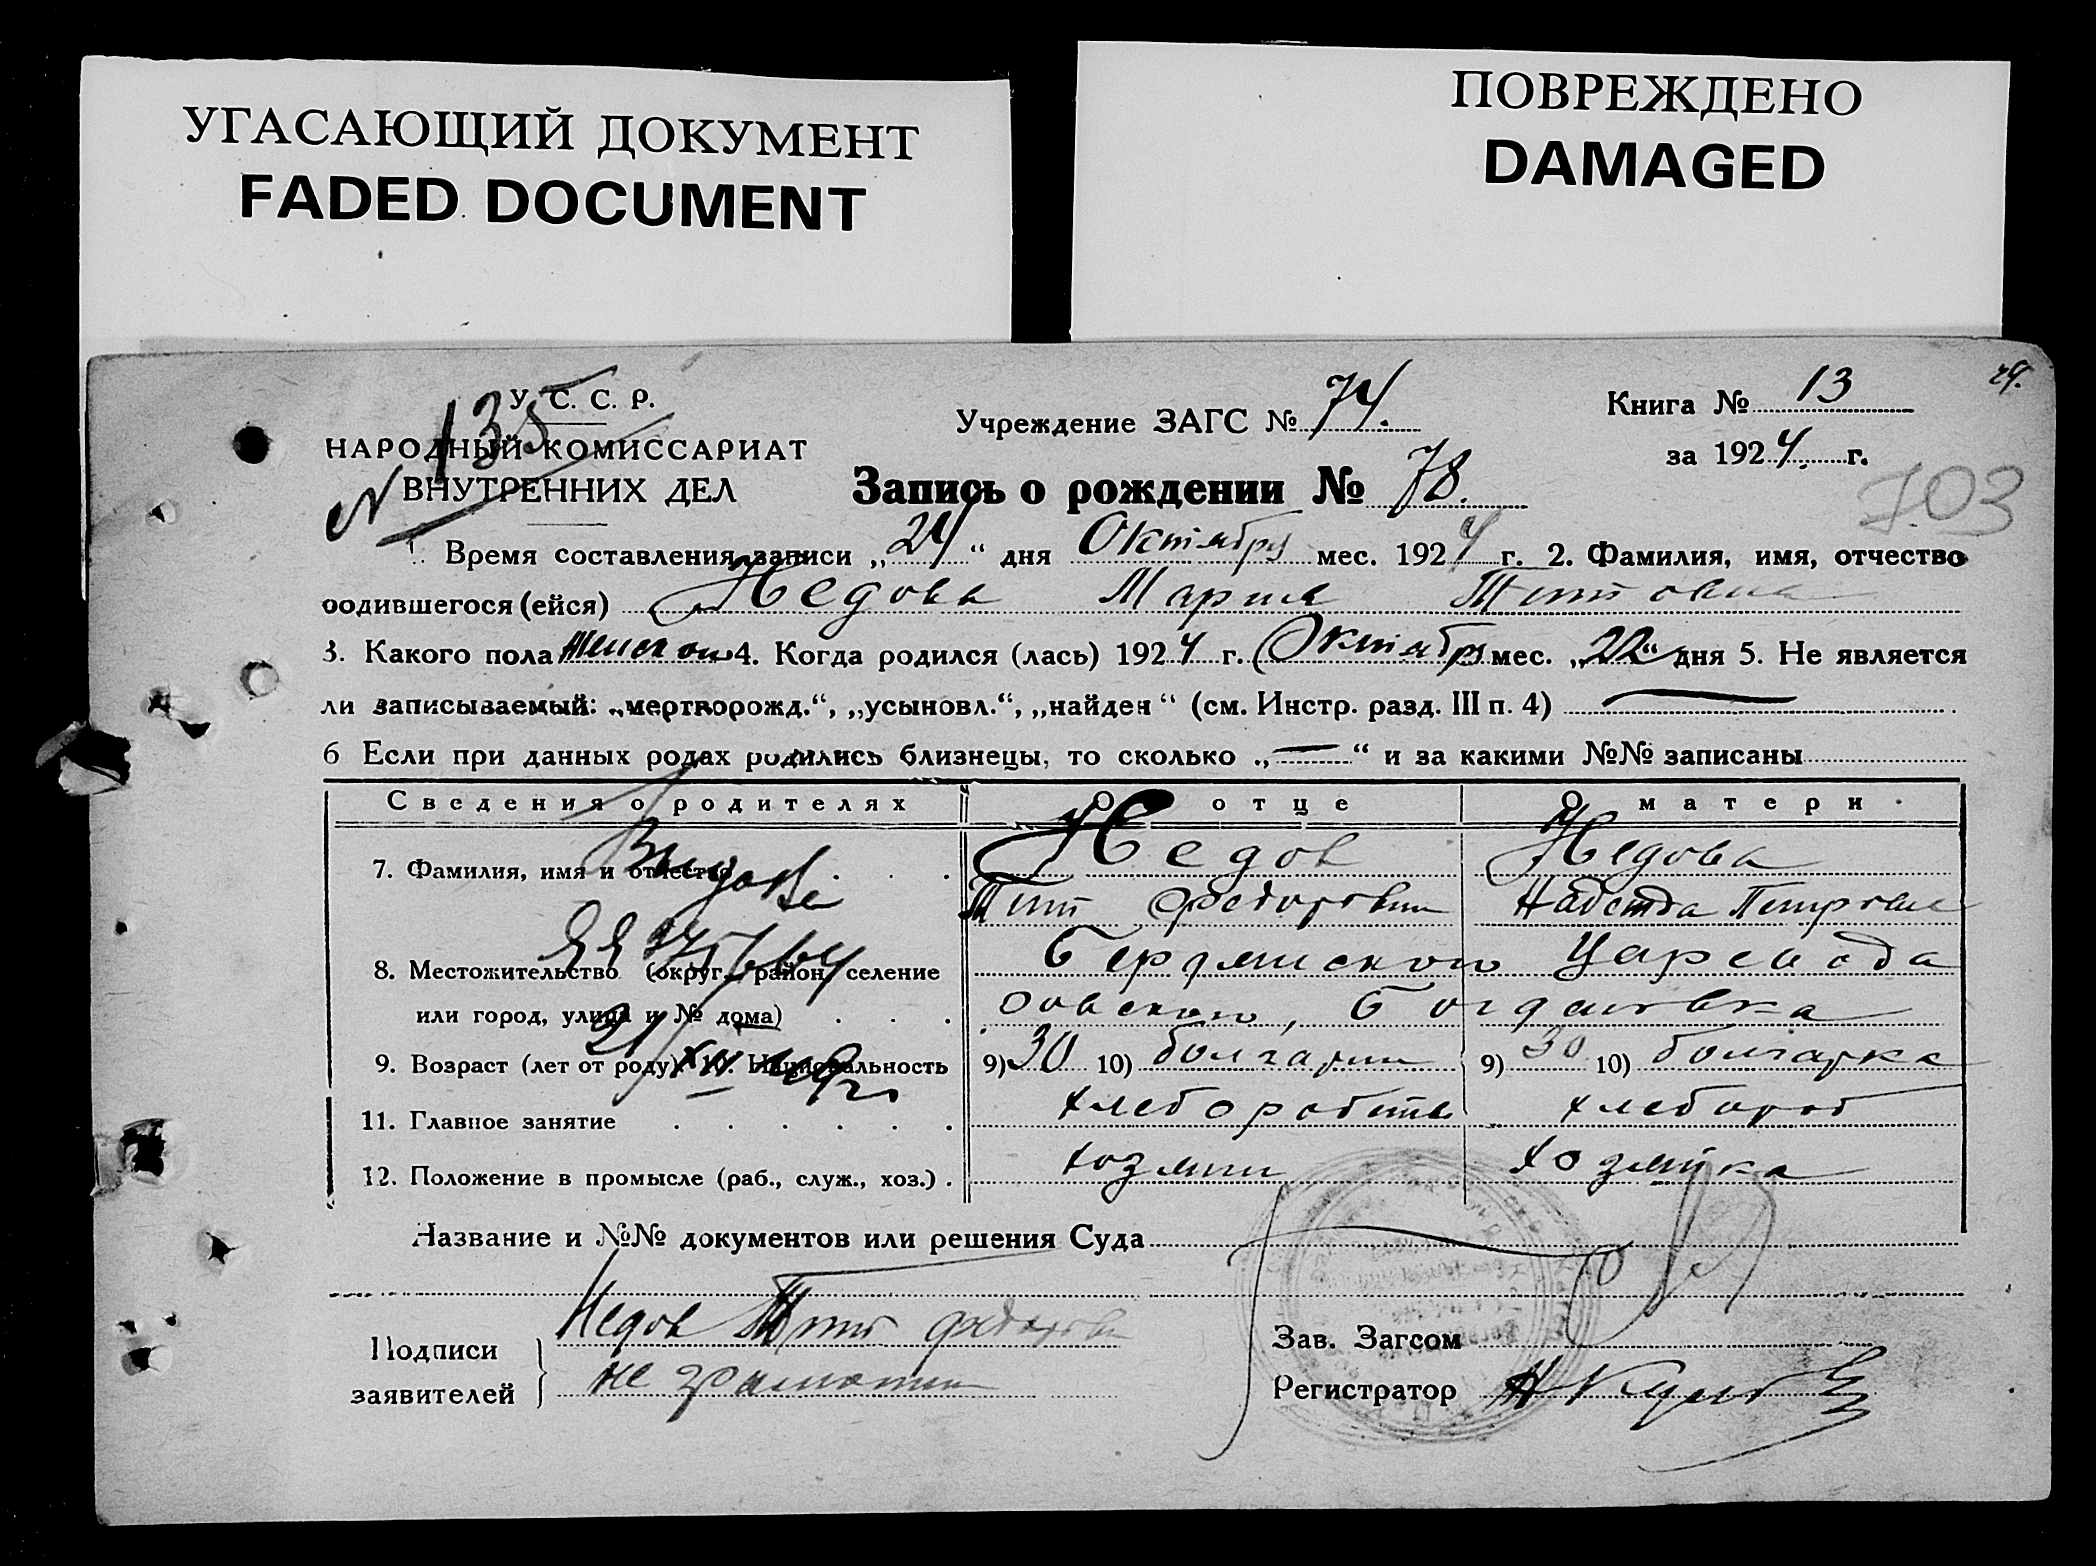 УГАСАЮЩИЙ ДОКУМЕНТ
FADED DOCUMENT
ПОВРЕЖДЕНО
DAMAGED
29.
У. С. С. Р.
Учреждение ЗАГС № 74.
Книга № 13
НАРОДНЫЙ КОМИССАРИАТ
за 1924. г.
ВНУТРЕННИХ ДЕЛ
N 135
Запись о рождении № 78.
703
1. Время составления записи „24“ дня Октября мес. 1924 г. 2. Фамилия, имя, отчество
родившегося (ейся) Недова Мария Титовна
3. Какого пола женского 4. Когда родился (лась) 1924 г. Октября мес. „22“ дня 5. Не является
ли записываемый: „мертворожд.“, „усыновл.“, „найден“ (см. Инстр. разд. III п. 4) —
6 Если при данных родах родились близнецы, то сколько „—“ и за какими №№ записаны
Сведения о родителях О отце О матери
7. Фамилия, имя и отчество Недов Недова
Тит Федорович Надежда Петровна
8. Местожительство (округ, район, селение Бердянского Царевода
или город, улица и № дома) овского, Богдановка
9. Возраст (лет от роду) 10. Национальность 9) 30 10) болгарин 9) 30 10) болгарка
11. Главное занятие хлебороб
12. Положение в промысле (раб., служ., хоз.) хозяин хозяйка
Название и №№ документов или решения Суда
Подписи заявителей
Недов Тит
не грамотный
Зав. Загсом
Регистратор